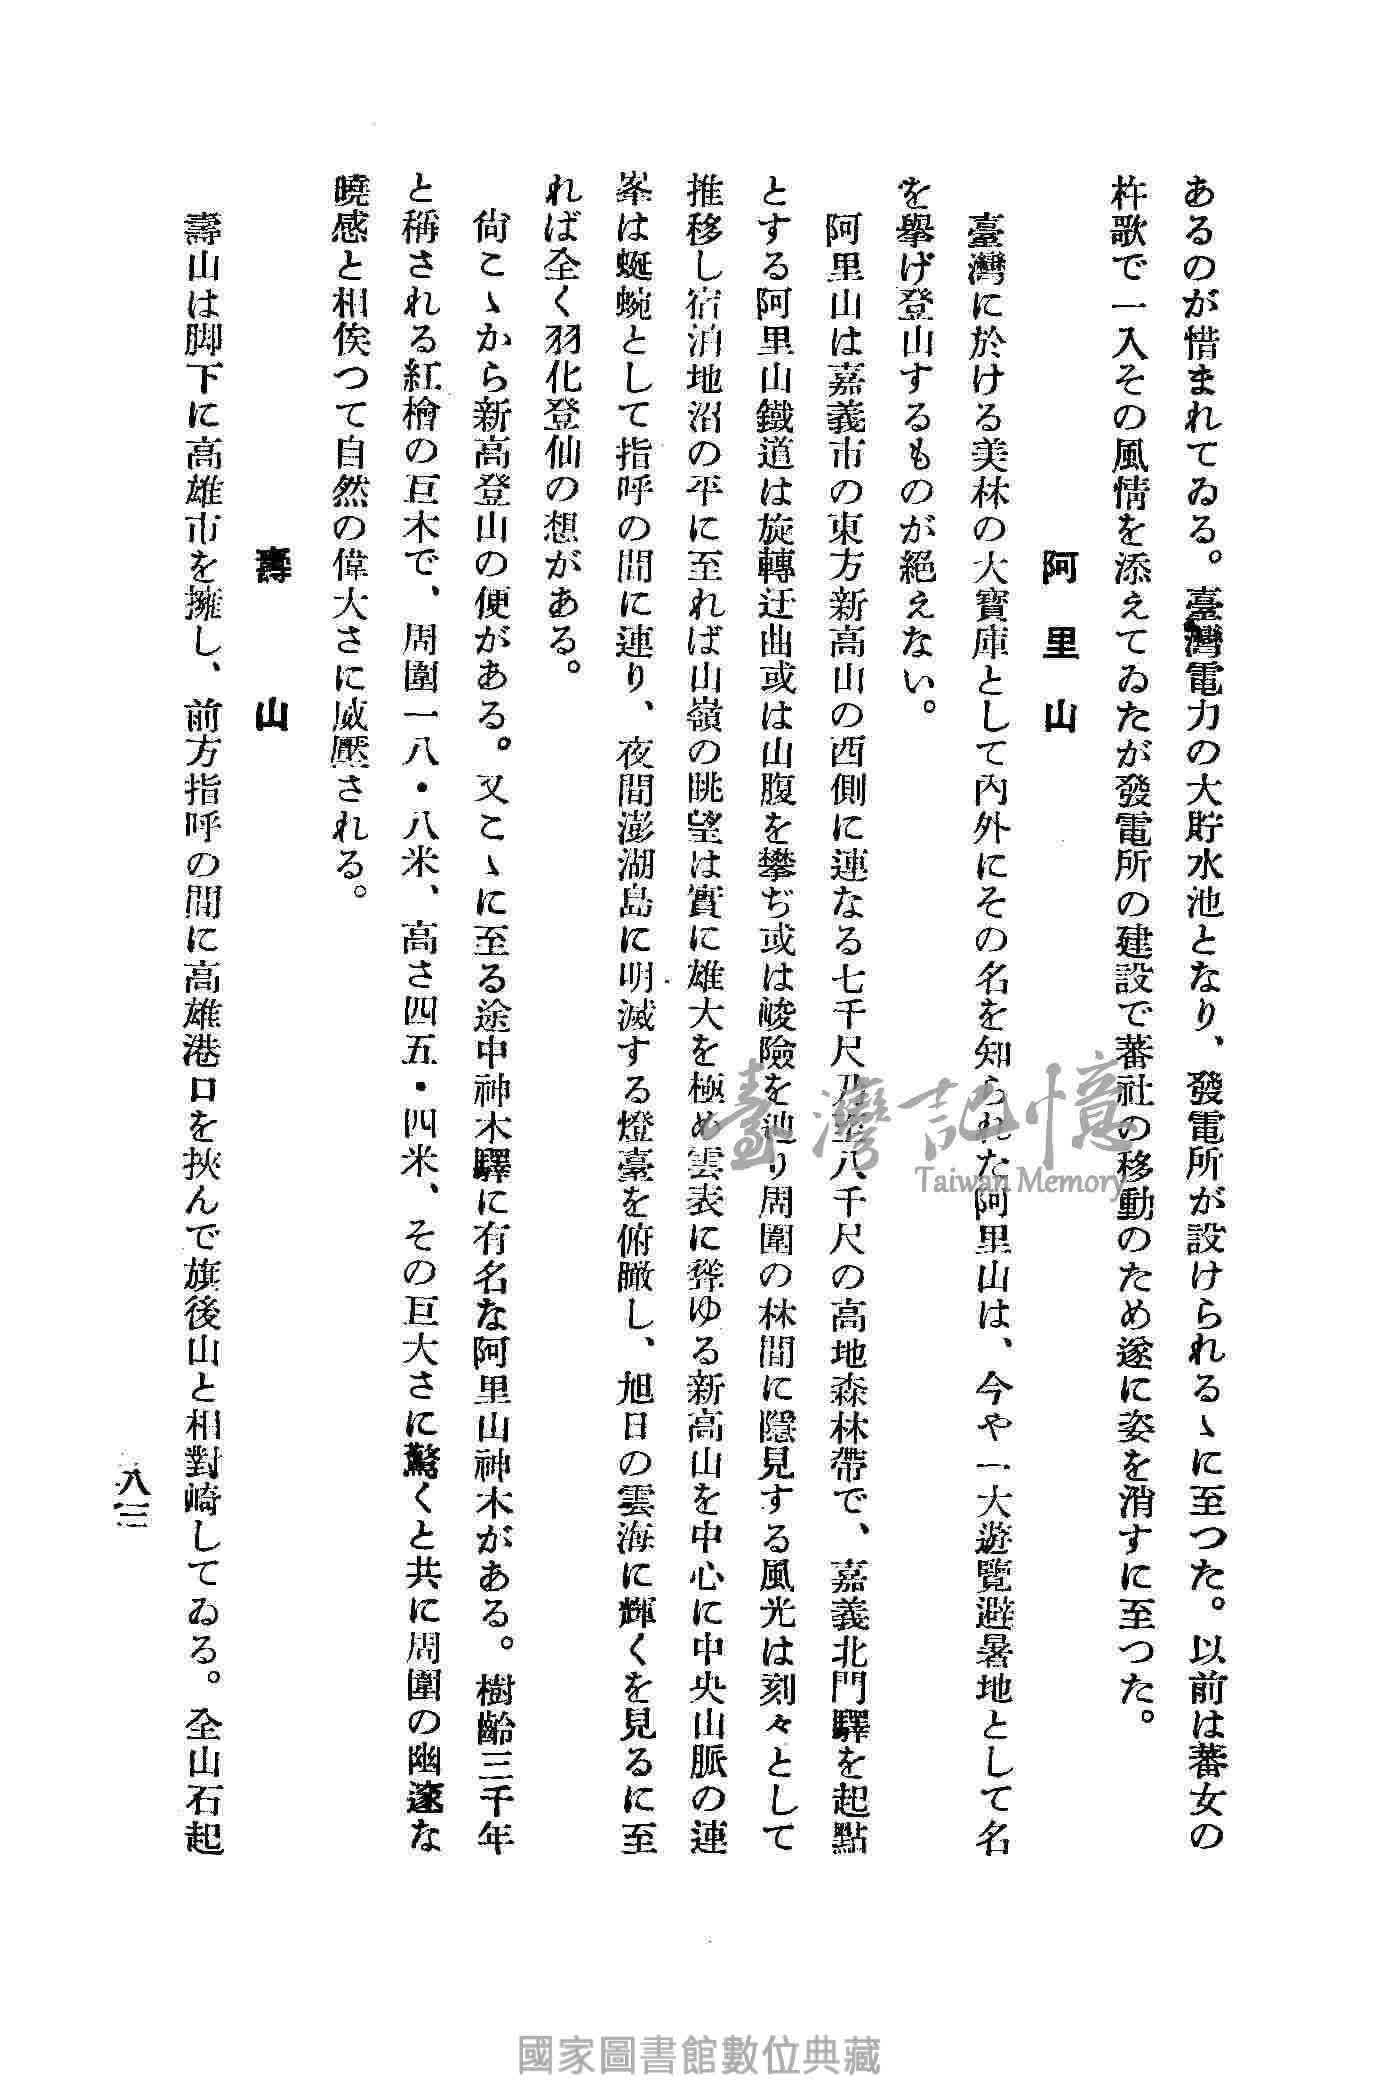 あるのが惜まれてゐる。臺灣電力の大貯水池となり、發電所が設けられるゝに至つた。以前は蕃女の
杵歌で一入その風情を添えてゐたが發電所の建設で蕃社の移動のため遂に姿を消すに至つた。
阿里山
臺灣に於ける美林の大寶庫として內外にその名を知られた阿里山は、今や一大遊覽避暑地として名
を擧げ登山するものが絕えない。
阿里山は嘉義市の東方新高山の西側に連なる七千尺乃至八千尺の高地森林帶で、嘉義北門驛を起點
とする阿里山鐵道は旋轉迂曲或は山腹を攀ぢ或は峻險を辿り周圍の林間に隱見する風光は刻々として
推移し宿泊地沼の平に至れば山嶺の眺望は實に雄大を極め雲表に聳ゆる新高山を中心に中央山脈の連
峯は蜒蜿として指呼の間に連り、夜間澎湖島に明滅する燈臺を俯瞰し、旭日の雲海に輝くを見るに至
れば全く羽化登仙の想がある。
尙こゝから新高登山の便がある。又こゝに至る途中神木驛に有名な阿里山神木がある。樹齡三千年
と稱される紅檜の巨木で、周圍一八・八米、高さ四五・四米、その巨大さに驚くと共に周圍の幽邃な
曉感と相俟つて自然の偉大さに威壓される。
壽山
壽山は脚下に高雄市を擁し、前方指呼の間に高雄港口を挾んで旗後山と相對崎してゐる。全山石起
八三
臺灣記憶
Taiwan Memory
國家圖書館數位典藏